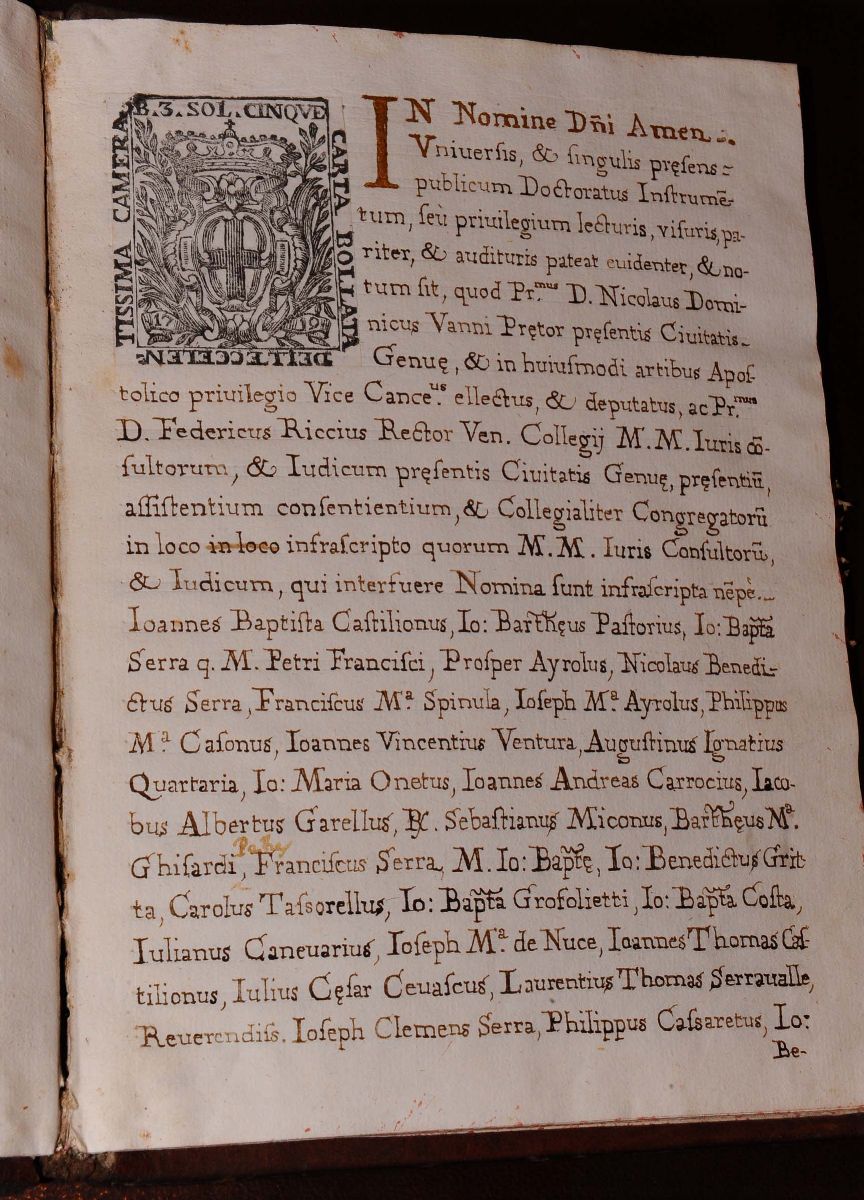 B. 3. SOL. CINQVE
CARTA BOLLATA
DELL'ECCELEN-
TISSIMA CAMERA
17 19
IN Nomine Dñi Amen
Vniuersis, & singulis pręsens
publicum Doctoratus Instrumē-
tum, seù priuilegium lecturis, visuris, pa-
riter, & audituris pateat euidenter, & no-
tum sit, quod Pr.mus D. Nicolaus Domi-
nicus Vanni Prętor pręsentis Ciuitatis
Genuę, & in huiusmodi artibus Apos-
tolico priuilegio Vice Cance.us ellectus, & deputatus, ac Pr.mus
D. Federicus Riccius Rector Ven. Collegij M. M. Iuris cō-
sultorum, & Iudicum pręsentis Ciuitatis Genuę, pręsentiū,
assistentium consentientium, & Collegialiter Congregatorū
in loco in loco infrascripto quorum M. M. Iuris Consultorū,
& Iudicum, qui interfuere Nomina sunt infrascripta nēpè.
Ioannes Baptista Castilionus, Io: Barthęus Pastorius, Io: Bapta
Serra q. M. Petri Francisci, Prosper Ayrolus, Nicolaus Benedi-
ctus Serra, Franciscus M.a Spinula, Ioseph M.a Ayrolus, Philippus
M.a Casonus, Ioannes Vincentius Ventura, Augustinus Ignatius
Quartaria, Io: Maria Onetus, Ioannes Andreas Carrocius, Iaco-
bus Albertus Garellus, Sebastianus Miconus, Barthęus M.a
Ghisardi, Franciscus Serra, M. Io: Baptę, Io: Benedictus Grit-
ta, Carolus Tassorellus, Io: Bapta Grofolietti, Io: Bapta Costa,
Iulianus Caneuarius, Ioseph M.a de Nuce, Ioannes Thomas Cas-
tilionus, Iulius Cęsar Ceuascus, Laurentius Thomas Serraualle,
Reuerendiss. Ioseph Clemens Serra, Philippus Cassaretus, Io:
Be-